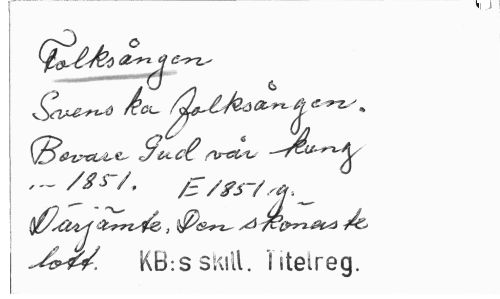 Folksången
Svenska folksången.
Bevare Gud vår kung
... 1851. E 1851 g.
Därjämte, Den skönaste
lott. KB:s skill. Titelreg.